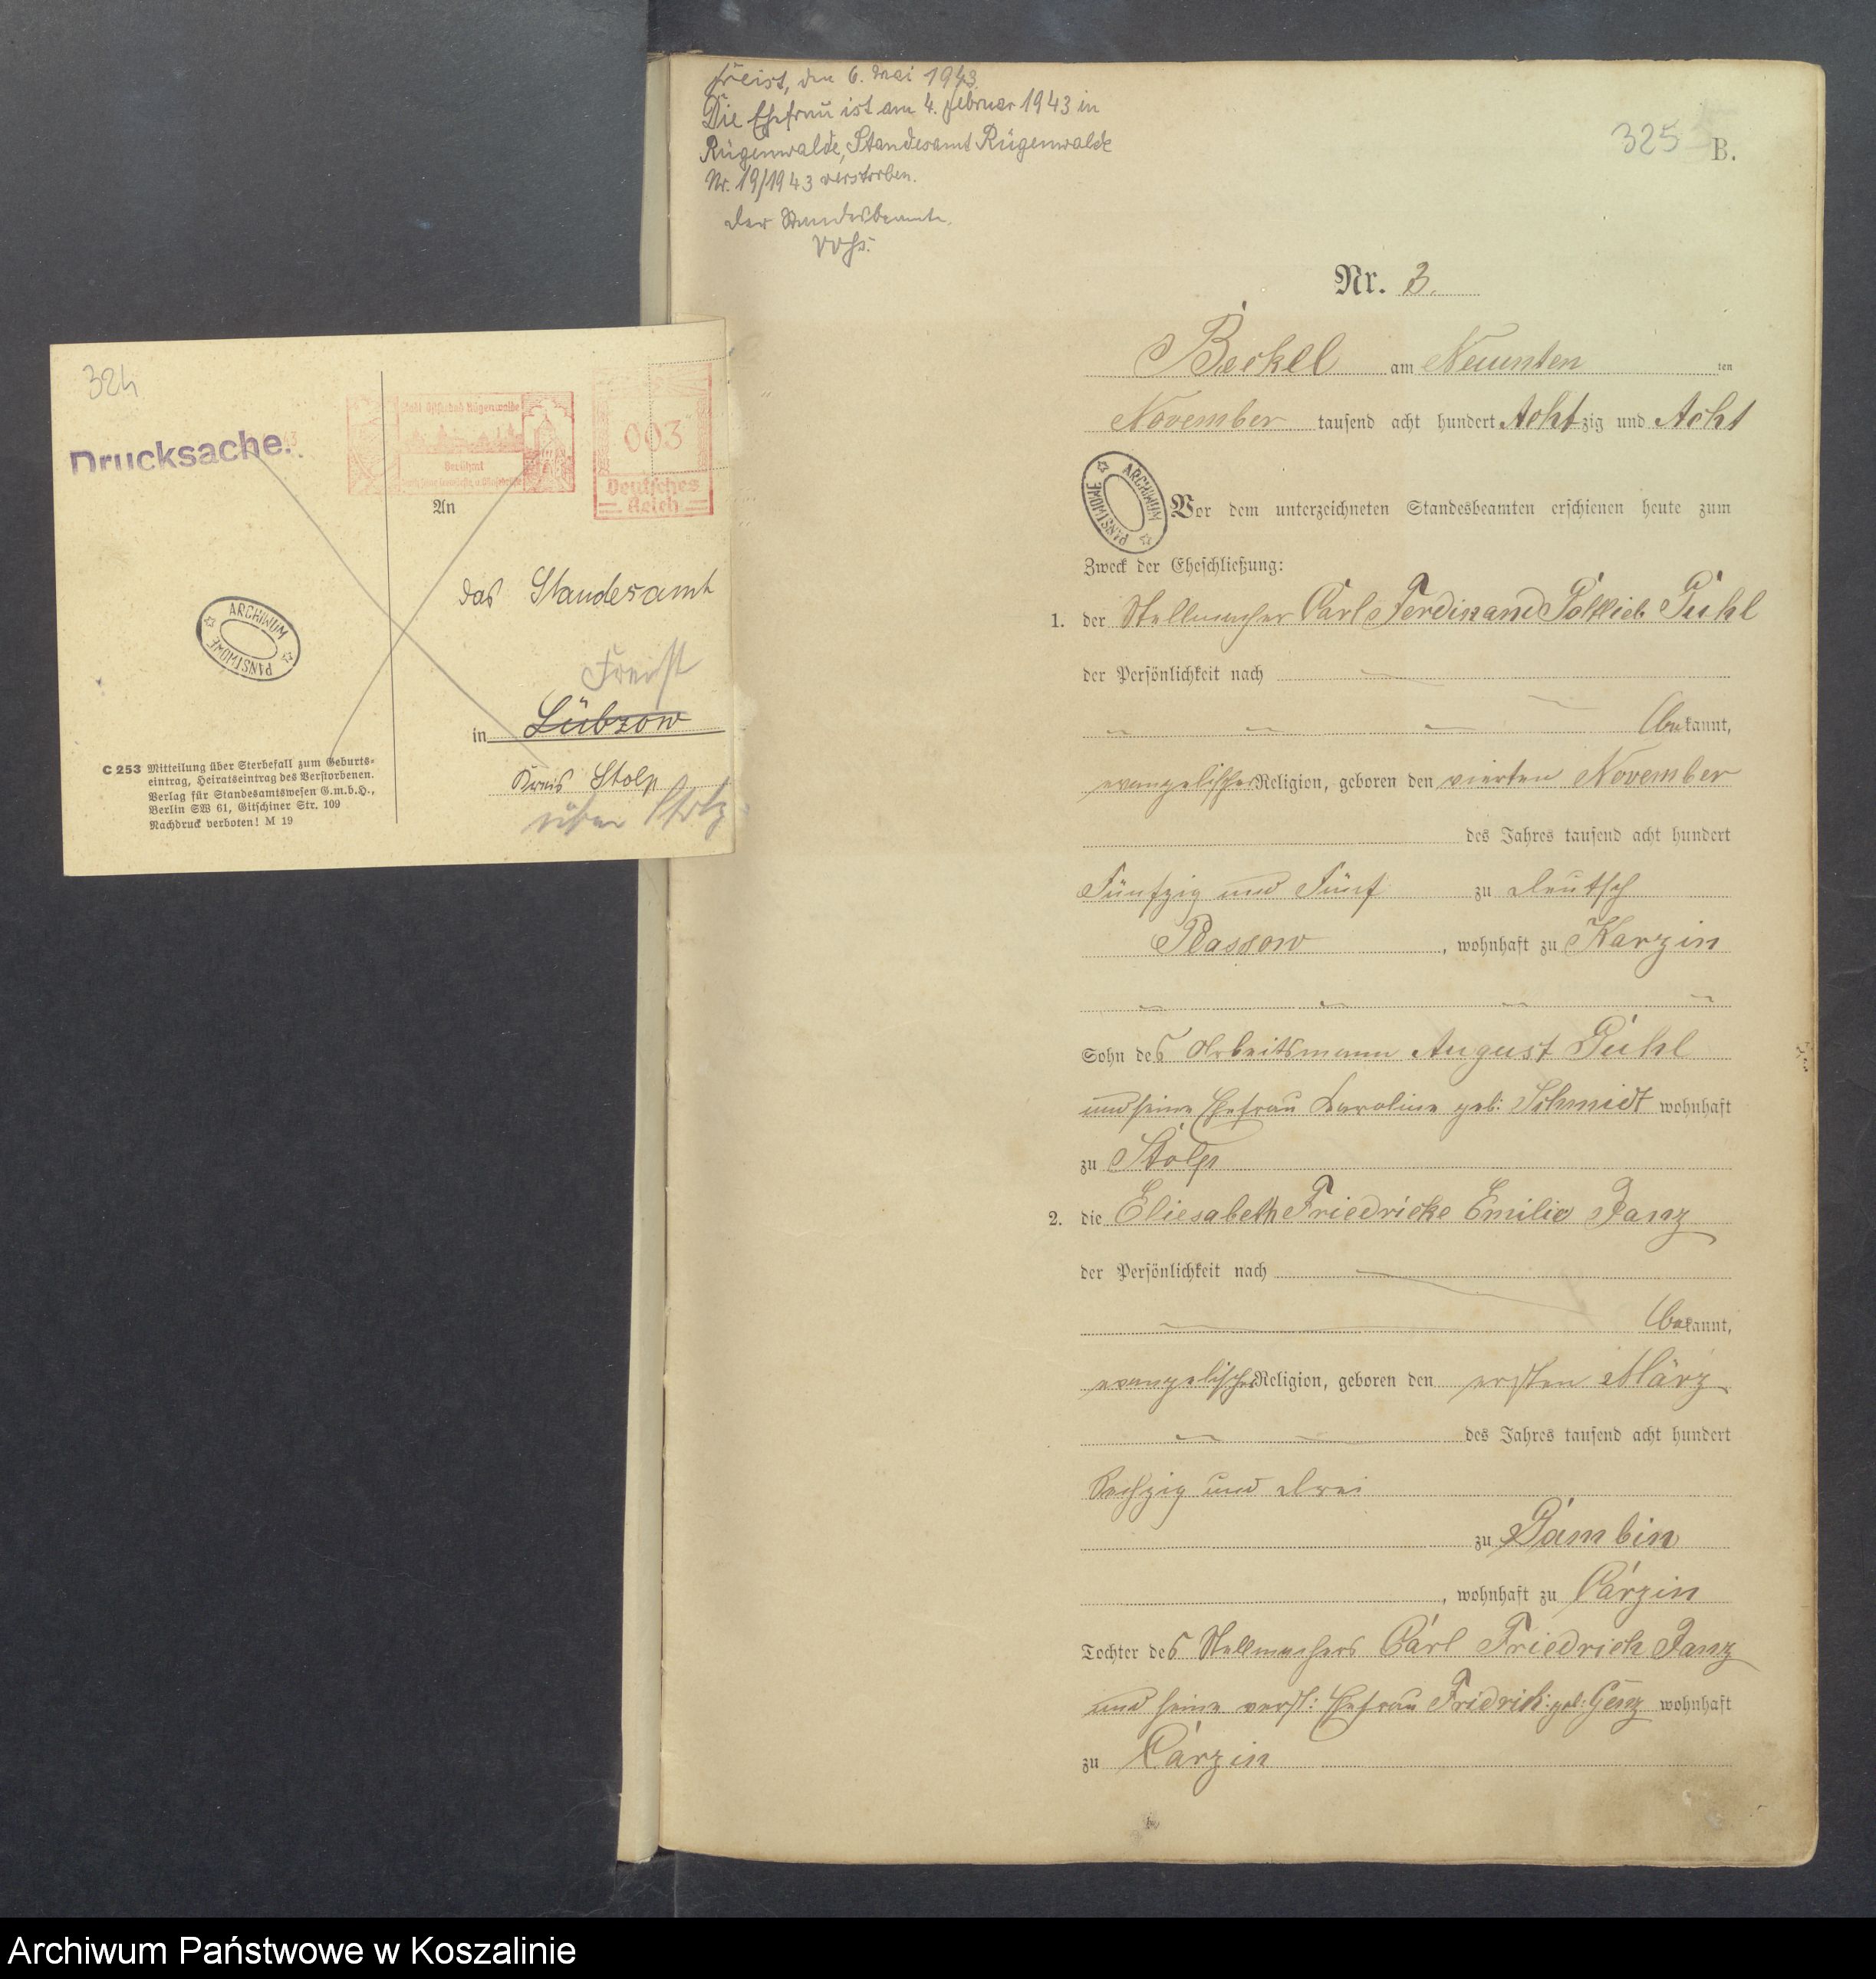 Freist, den 6. Mai 1943.
Die Ehefrau ist am 4. Februar 1943 in
Rügenwalde, Standesamt Rügenwalde
Nr. 19/1943 verstorben.
Der Standesbeamte.
325 B.
Nr. 3.
Beckel am Neunten ten
November tausend acht hundert Achtzig und Acht
ARCHIWUM PAŃSTWOWE
Vor dem unterzeichneten Standesbeamten erschienen heute zum
Zweck der Eheschließung:
1. der Stellmacher Carl Ferdinand Gottlieb Puhl
der Persönlichkeit nach
bekannt,
evangelischer Religion, geboren den vierten November
des Jahres tausend acht hundert
Fünfzig und Fünf zu Deutsch
Plassow, wohnhaft zu Karzin
Sohn des Arbeitsmann August Puhl
und seine Ehefrau Karoline geb. Schmidt wohnhaft
zu Stolp
2. die Eliesabeth Friedricke Emilie Janz
der Persönlichkeit nach
bekannt,
evangelischer Religion, geboren den ersten März
des Jahres tausend acht hundert
Sechzig und Drei
zu Dambin
, wohnhaft zu Carzin
Tochter des Stellmachers Carl Friedrich Janz
und seine verst: Ehefrau Fridrich: geb: Genz wohnhaft
zu Carzin
324
Drucksache.
003
Deutsches
Reich
Berühmt
An
das Standesamt
Freist
in Lübzow
Kreis Stolp
über Stolp
ARCHIWUM PAŃSTWOWE
C 253 Mitteilung über Sterbefall zum Geburts-
eintrag, Heiratseintrag des Verstorbenen.
Verlag für Standesamtswesen G.m.b.H.,
Berlin SW 61, Gitschiner Str. 109
Nachdruck verboten! M 19
Archiwum Państwowe w Koszalinie